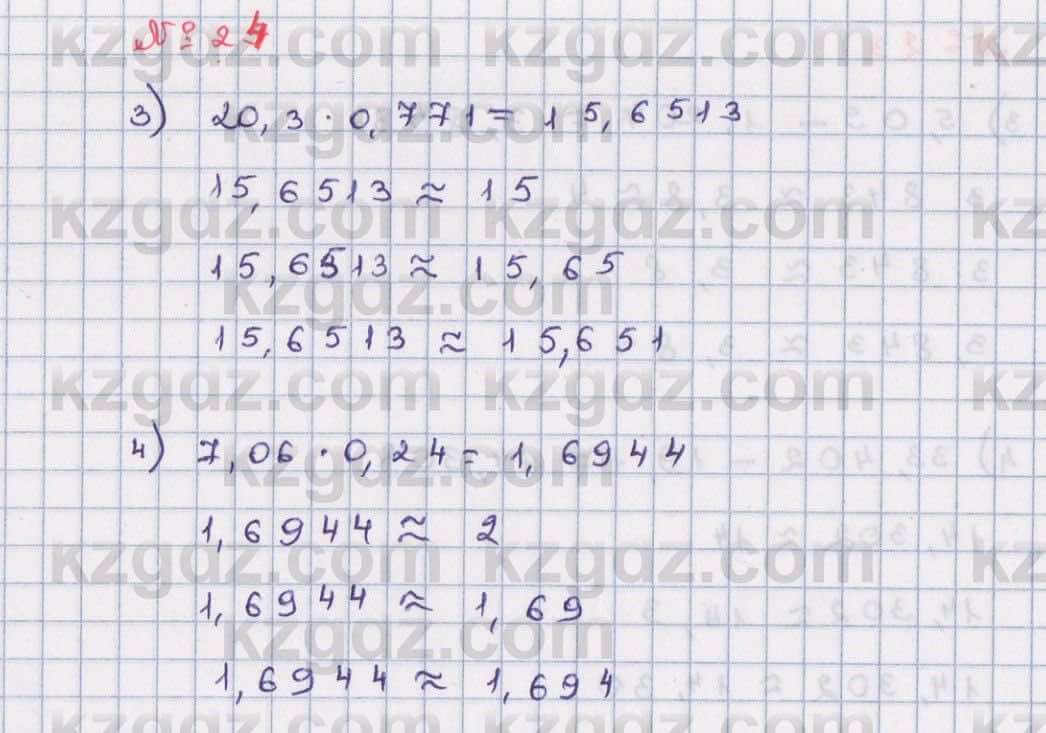 № 24
3) 20,3 · 0,771 = 15,6513
15,6513 ≈ 15
15,6513 ≈ 15,65
15,6513 ≈ 15,651
4) 7,06 · 0,24 = 1,6944
1,6944 ≈ 2
1,6944 ≈ 1,69
1,6944 ≈ 1,694
kzgdz.com